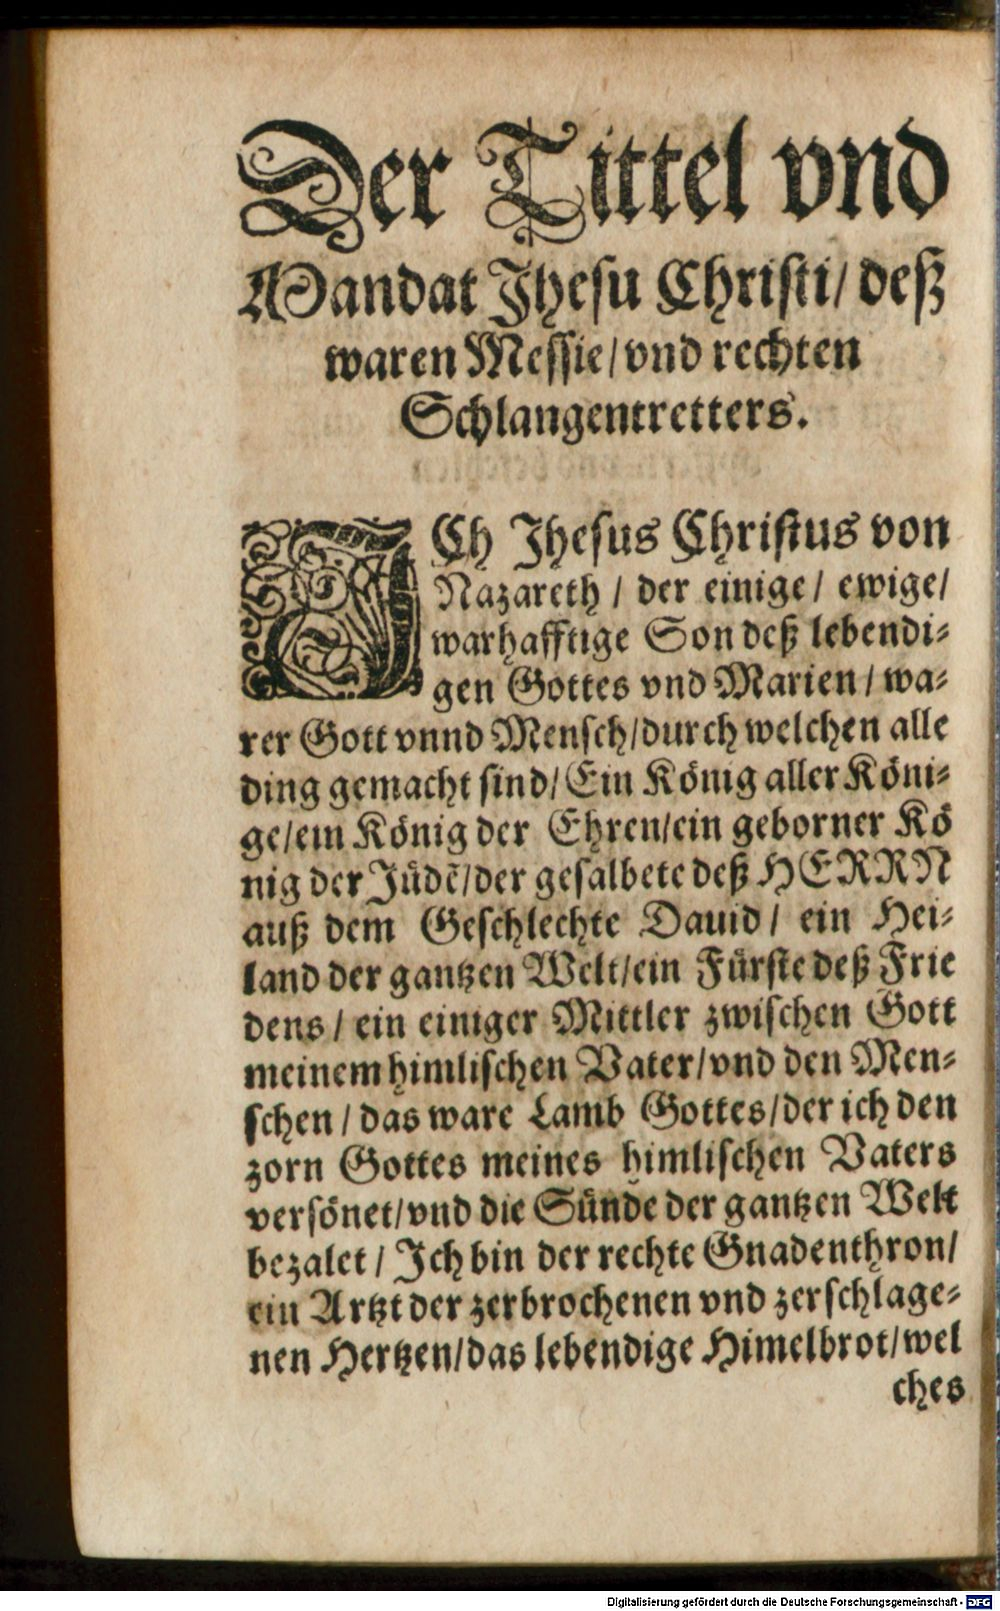 Der Tittel vnd
Mandat Jhesu Christi/ deß
waren Messie/ vnd rechten
Schlangentretters.
ICh Jhesus Christus von
Nazareth / der einige/ ewige/
warhafftige Son deß lebendi-
gen Gottes vnd Marien/ wa-
rer Gott vnnd Mensch/durch welchen alle
ding gemacht sind/ Ein König aller Köni-
ge/ein König der Ehren/ein geborner Kö
nig der Jüdẽ/der gesalbete deß HERRN
auß dem Geschlechte Dauid/ ein Hei-
land der gantzen Welt/ein Fürste deß Frie
dens/ ein einiger Mittler zwischen Gott
meinem himlischen Vater/vnd den Men-
schen / das ware Lamb Gottes/der ich den
zorn Gottes meines himlischen Vaters
versönet/vnd die Sünde der gantzen Welt
bezalet / Ich bin der rechte Gnadenthron/
ein Artzt der zerbrochenen vnd zerschlage-
nen Hertzen/das lebendige Himelbrot/wel
ches
Digitalisierung gefördert durch die Deutsche Forschungsgemeinschaft - DFG